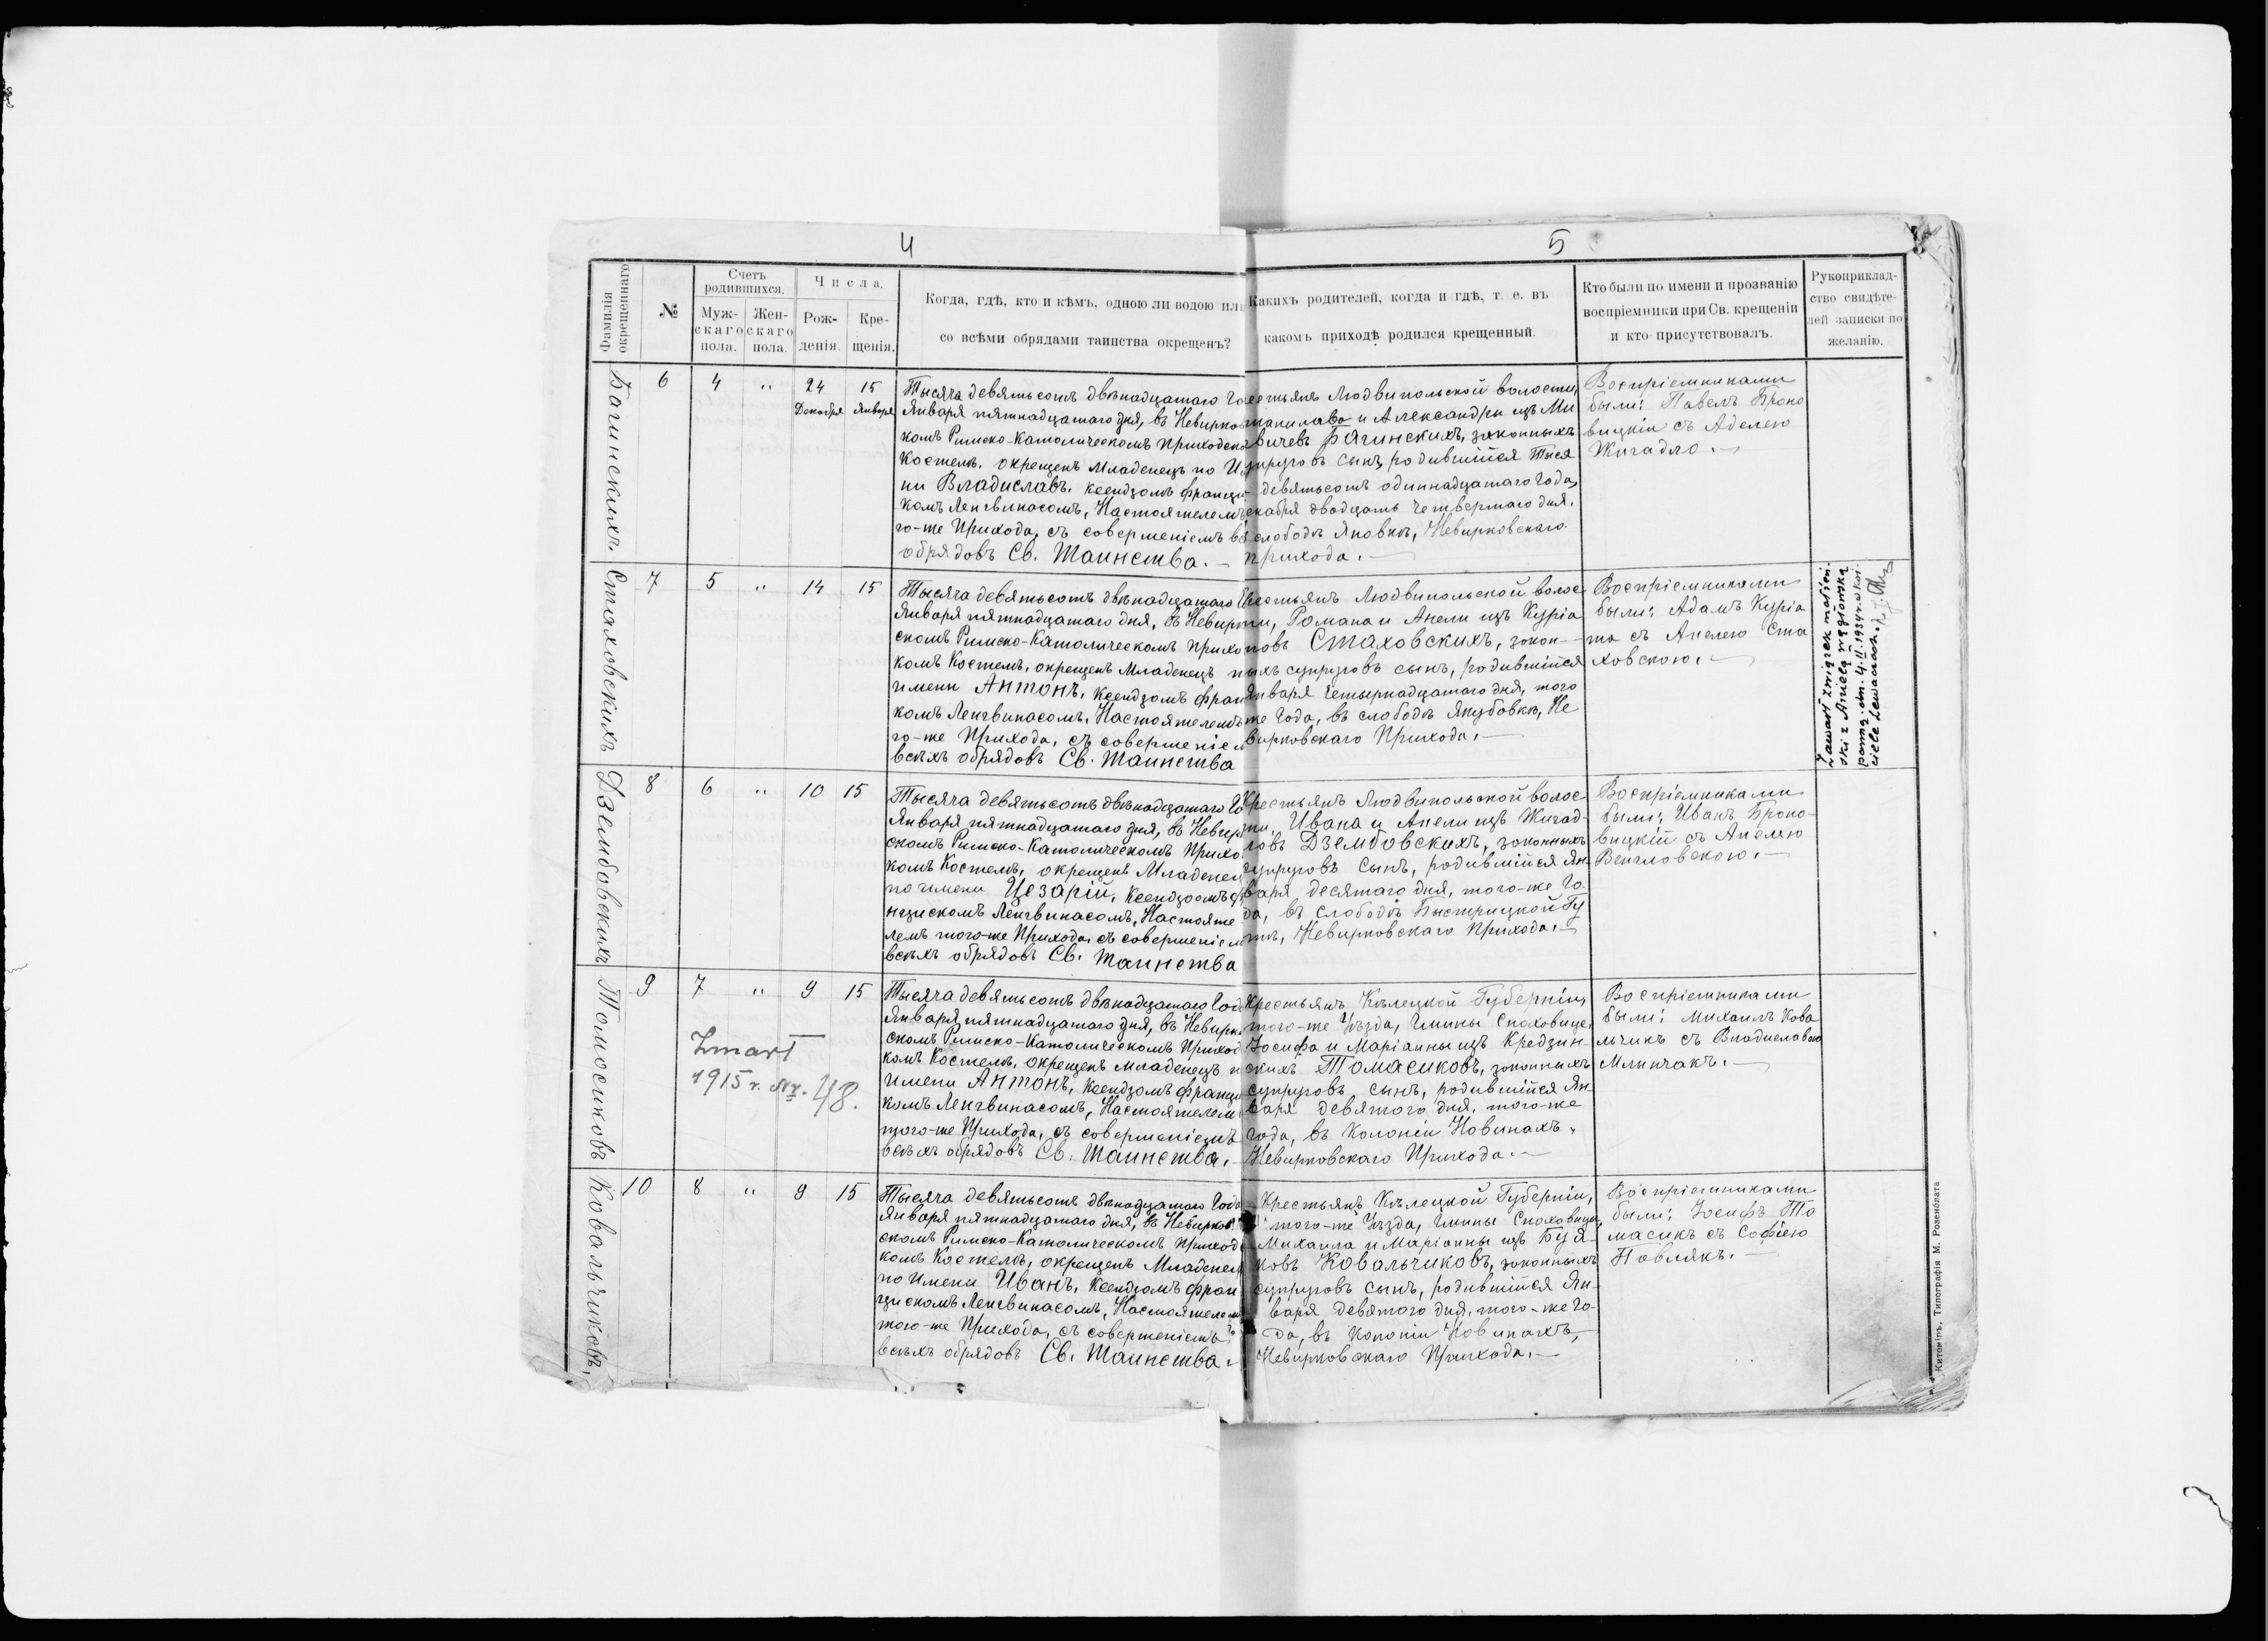 4
5
Фамилія окрещеннаго.
№
Счетъ родившихся.
Муж-скаго пола.
Жен-скаго пола.
Числа.
Рож-денія.
Кре-щенія.
Когда, гдѣ, кто и кѣмъ, одною ли водою или
со всѣми обрядами таинства окрещенъ?
Какихъ родителей, когда и гдѣ, т. е. въ
какомъ приходѣ родился крещенный.
Кто были по имени и прозванію
воспріемники при Св. крещеніи
и кто присутствовалъ.
Рукоприклад-
ство свидѣте-
лей записки по
желанію.
Багинскихъ
6
4
"
24 Декабря
15 Января
Тысяча девятьсотъ двѣнадцатаго Го
Января пятнадцатаго дня, въ Невирков
комъ Римско-Католическомъ Приходск
Костелѣ, окрещенъ Младенецъ по И
ни Владиславъ, Ксендзомъ Франци
комъ Ленгвинасомъ, Настоятелемъ
го-же Прихода, съ совершеніемъ вс
обрядовъ Св. Таинства.
естьянъ Людвипольской волости,
танислава и Александры изъ Ми
вичевъ Багинскихъ, законныхъ
упруговъ сынъ, родившійся Тыся
девятьсотъ одиннадцатаго Года,
екабря двадцать четвертаго дня,
слободѣ Яновкѣ, Невирковскаго
прихода.
Воспріемниками
были: Павелъ Броно
вицкій съ Аделею
Жигадло.
Стаховскихъ
7
5
"
14
15
Тысяча девятьсотъ двѣнадцатаго
Января пятнадцатаго дня, въ Невирк
скомъ Римско-Католическомъ Прихо
комъ Костелѣ, окрещенъ Младенецъ п
имени Антонъ, Ксендзомъ Фран
комъ Ленгвинасомъ, Настоятелемъ
го-же Прихода, съ совершеніем
всѣхъ обрядовъ Св. Таинства
естьянъ Людвипольской волос
ти, Романа и Анели изъ Куріа
новъ Стаховскихъ, закон-
ныхъ супруговъ сынъ, родившійся
Января Четырнадцатаго дня, того
же Года, въ слободѣ Якубовкѣ, Не
вирковскаго Прихода.
Воспріемниками
были: Адамъ Куріа
та съ Анелею Ста
ховскою.
Zawarł związek małżeń-
ski z Anielą Węglowską
4.II.1934 r. w koś-
ciele
Дзембовскихъ
8
6
"
10
15
Тысяча девятьсотъ двѣнадцатаго Го
Января пятнадцатаго дня, въ Невир
скомъ Римско-Католическомъ Прихо
комъ Костелѣ, окрещенъ Младенец
по имени Цезарій, Ксендзомъ Ф
нцискомъ Ленгвинасомъ, Настояте
лемъ того-же Прихода, съ совершеніем
всѣхъ обрядовъ Св. Таинства
Крестьянъ Людвипольской волос
ти, Ивана и Анели изъ Жигад-
ловъ Дзембовскихъ, законныхъ
супруговъ сынъ, родившійся Ян-
варя десятаго дня, того-же Го-
да, въ слободѣ Быстрицкой Гу
тѣ, Невирковскаго Прихода.
Воспріемниками
были: Иванъ Броно-
вицкій съ Анелею
Венгловскою.
Томасиковъ
9
7
"
9
15
Zmarł
1915 r. Nr. 48.
Тысяча девятьсотъ двѣнадцатаго Года
Января пятнадцатаго дня, въ Невирк
скомъ Римско-Католическомъ Приход
комъ Костелѣ, окрещенъ Младенецъ п
имени Антонъ, Ксендзомъ Франци
комъ Ленгвинасомъ, Настоятелем
того-же Прихода, съ совершеніемъ
всѣхъ обрядовъ Св. Таинства.
Крестьянъ Кѣлецкой Губерніи,
того-же Уѣзда, Гмины Сноховице,
Іосифа и Маріанны изъ Кредзин-
скихъ Томасиковъ, законныхъ
супруговъ сынъ, родившійся Ян-
варя девятого дня, того-же
года, въ Колоніи Новинахъ,
Невирковскаго Прихода.
Воспріемниками
были: Михаилъ Кова
льчикъ съ Владиславою
Млинчакъ.
Ковальчиковъ
10
8
"
9
15
Тысяча девятьсотъ двѣнадцатаго Года
Января пятнадцатаго дня, въ Невирков
скомъ Римско-Католическомъ Приход
комъ Костелѣ, окрещенъ Младенец
по Имени Иванъ, Ксендзомъ Фран
цискомъ Ленгвинасомъ, Настоятелем
того-же Прихода, съ совершеніемъ
всѣхъ обрядовъ Св. Таинства.
Крестьянъ Кѣлецкой Губерніи,
того-же Уѣзда, Гмины Сноховице,
Михаила и Маріанны изъ Буя-
ковъ Ковальчиковъ, законныхъ
супруговъ сынъ, родившійся Ян-
варя девятого дня, того-же Го-
да, въ Колоніи Новинахъ,
Невирковскаго Прихода.
Воспріемниками
были: Іосифъ То
масикъ съ Софіею
Павлякъ.
Житоміръ, Типографія М. Розенблата